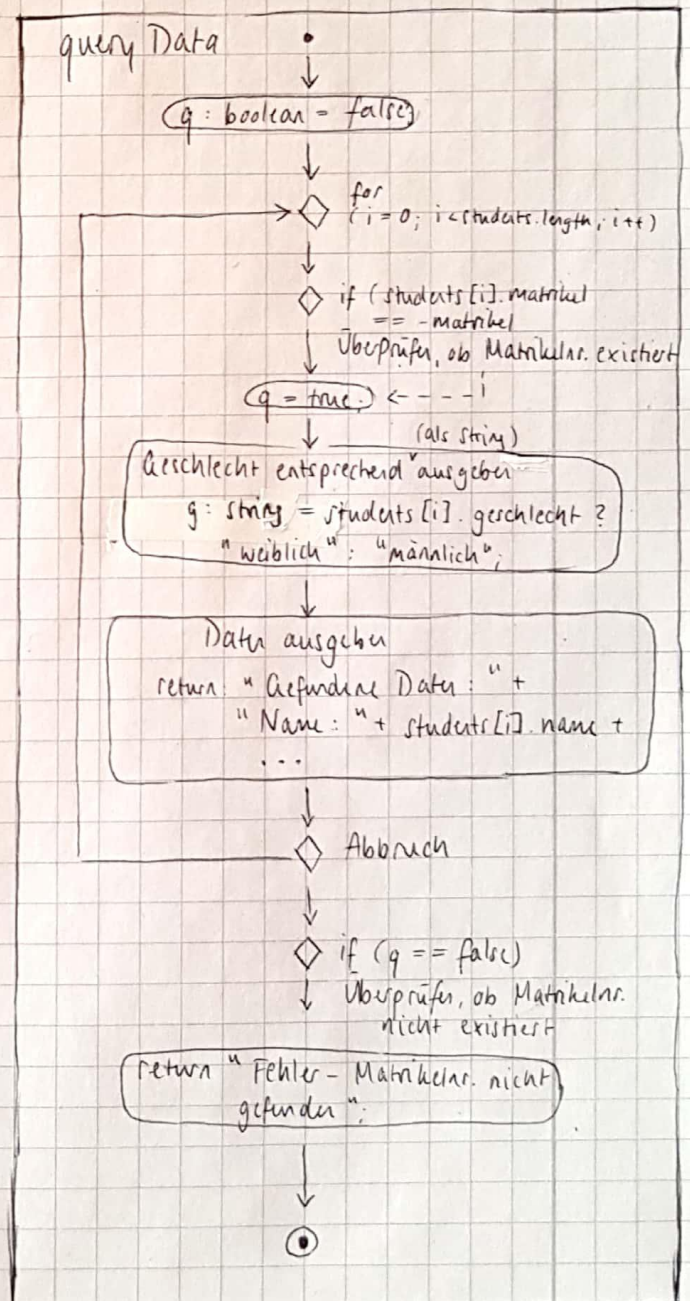 query Data
q : boolean = false;
for
(i = 0; i < students.length; i++)
if (students[i].matrikel
== -matrikel
Überprüfen, ob Matrikelnr. existiert
q = true;
(als string)
Geschlecht entsprechend ausgeben
g : string = students[i].geschlecht ?
"weiblich" : "männlich";
Daten ausgeben
return: "Gefundene Daten : " +
"Name : " + students[i].name +
...
Abbruch
if (q == false)
Überprüfen, ob Matrikelnr.
nicht existiert
return "Fehler - Matrikelnr. nicht
gefunden";